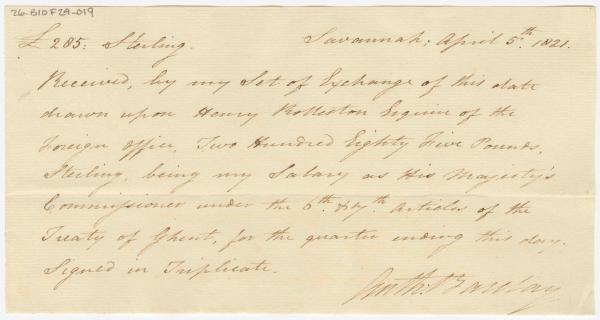 26-B10F29-019
£ 285: Sterling. Savannah; April 5th. 1821.
Received, by my Set of Exchange of this date
drawn upon Henry Rolleston Esquire of the
Foreign Office, Two Hundred Eighty Five Pounds,
Sterling, being my Salary as His Majesty's
Commissioner under the 6th. & 7th. Articles of the
Treaty of Ghent, for the quarter ending this day.
Signed in Triplicate.
Anth: Barclay